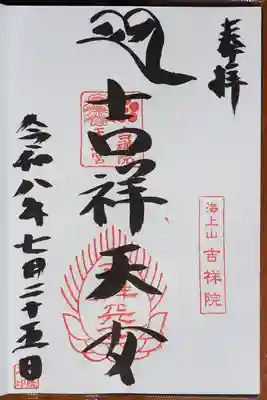 奉拝
海上山 吉祥院
吉祥天女
令和八年七月二十五日